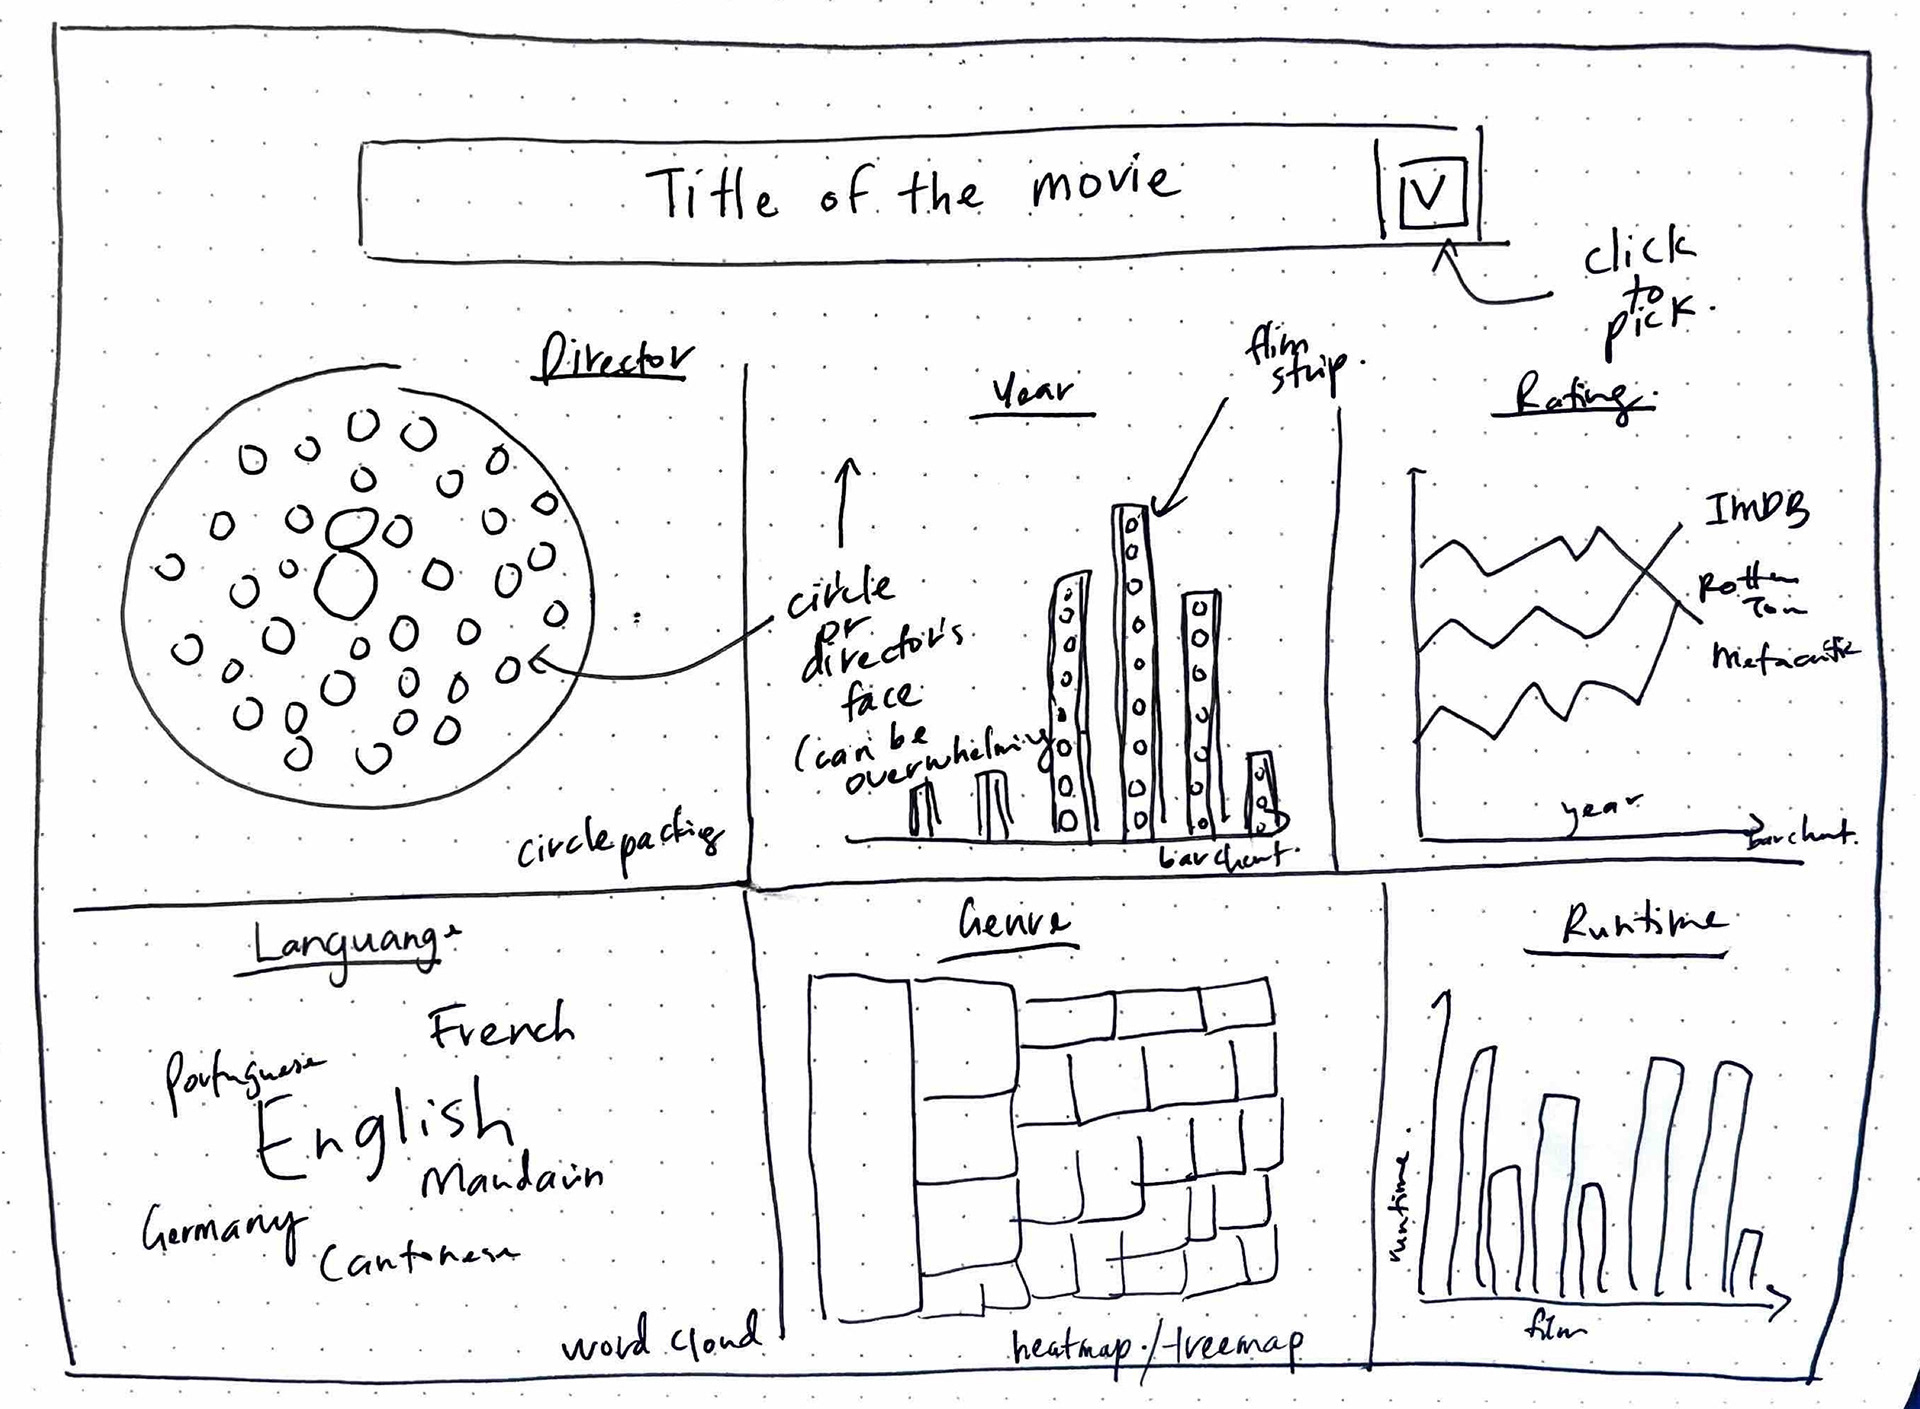 Title of the movie
V
click
to
pick.
Director
circle
or
director's
face
(can be
overwhelming
circle packing
Year
flim
strip.
bar chart.
Rating.
IMDB
Rotten
Tom
Metacritic
year
bar chart.
Languange
French
Portuguese
English
Mandarin
Germany
Cantonese
word cloud
Genre
heatmap./treemap
Runtime
runtime.
film